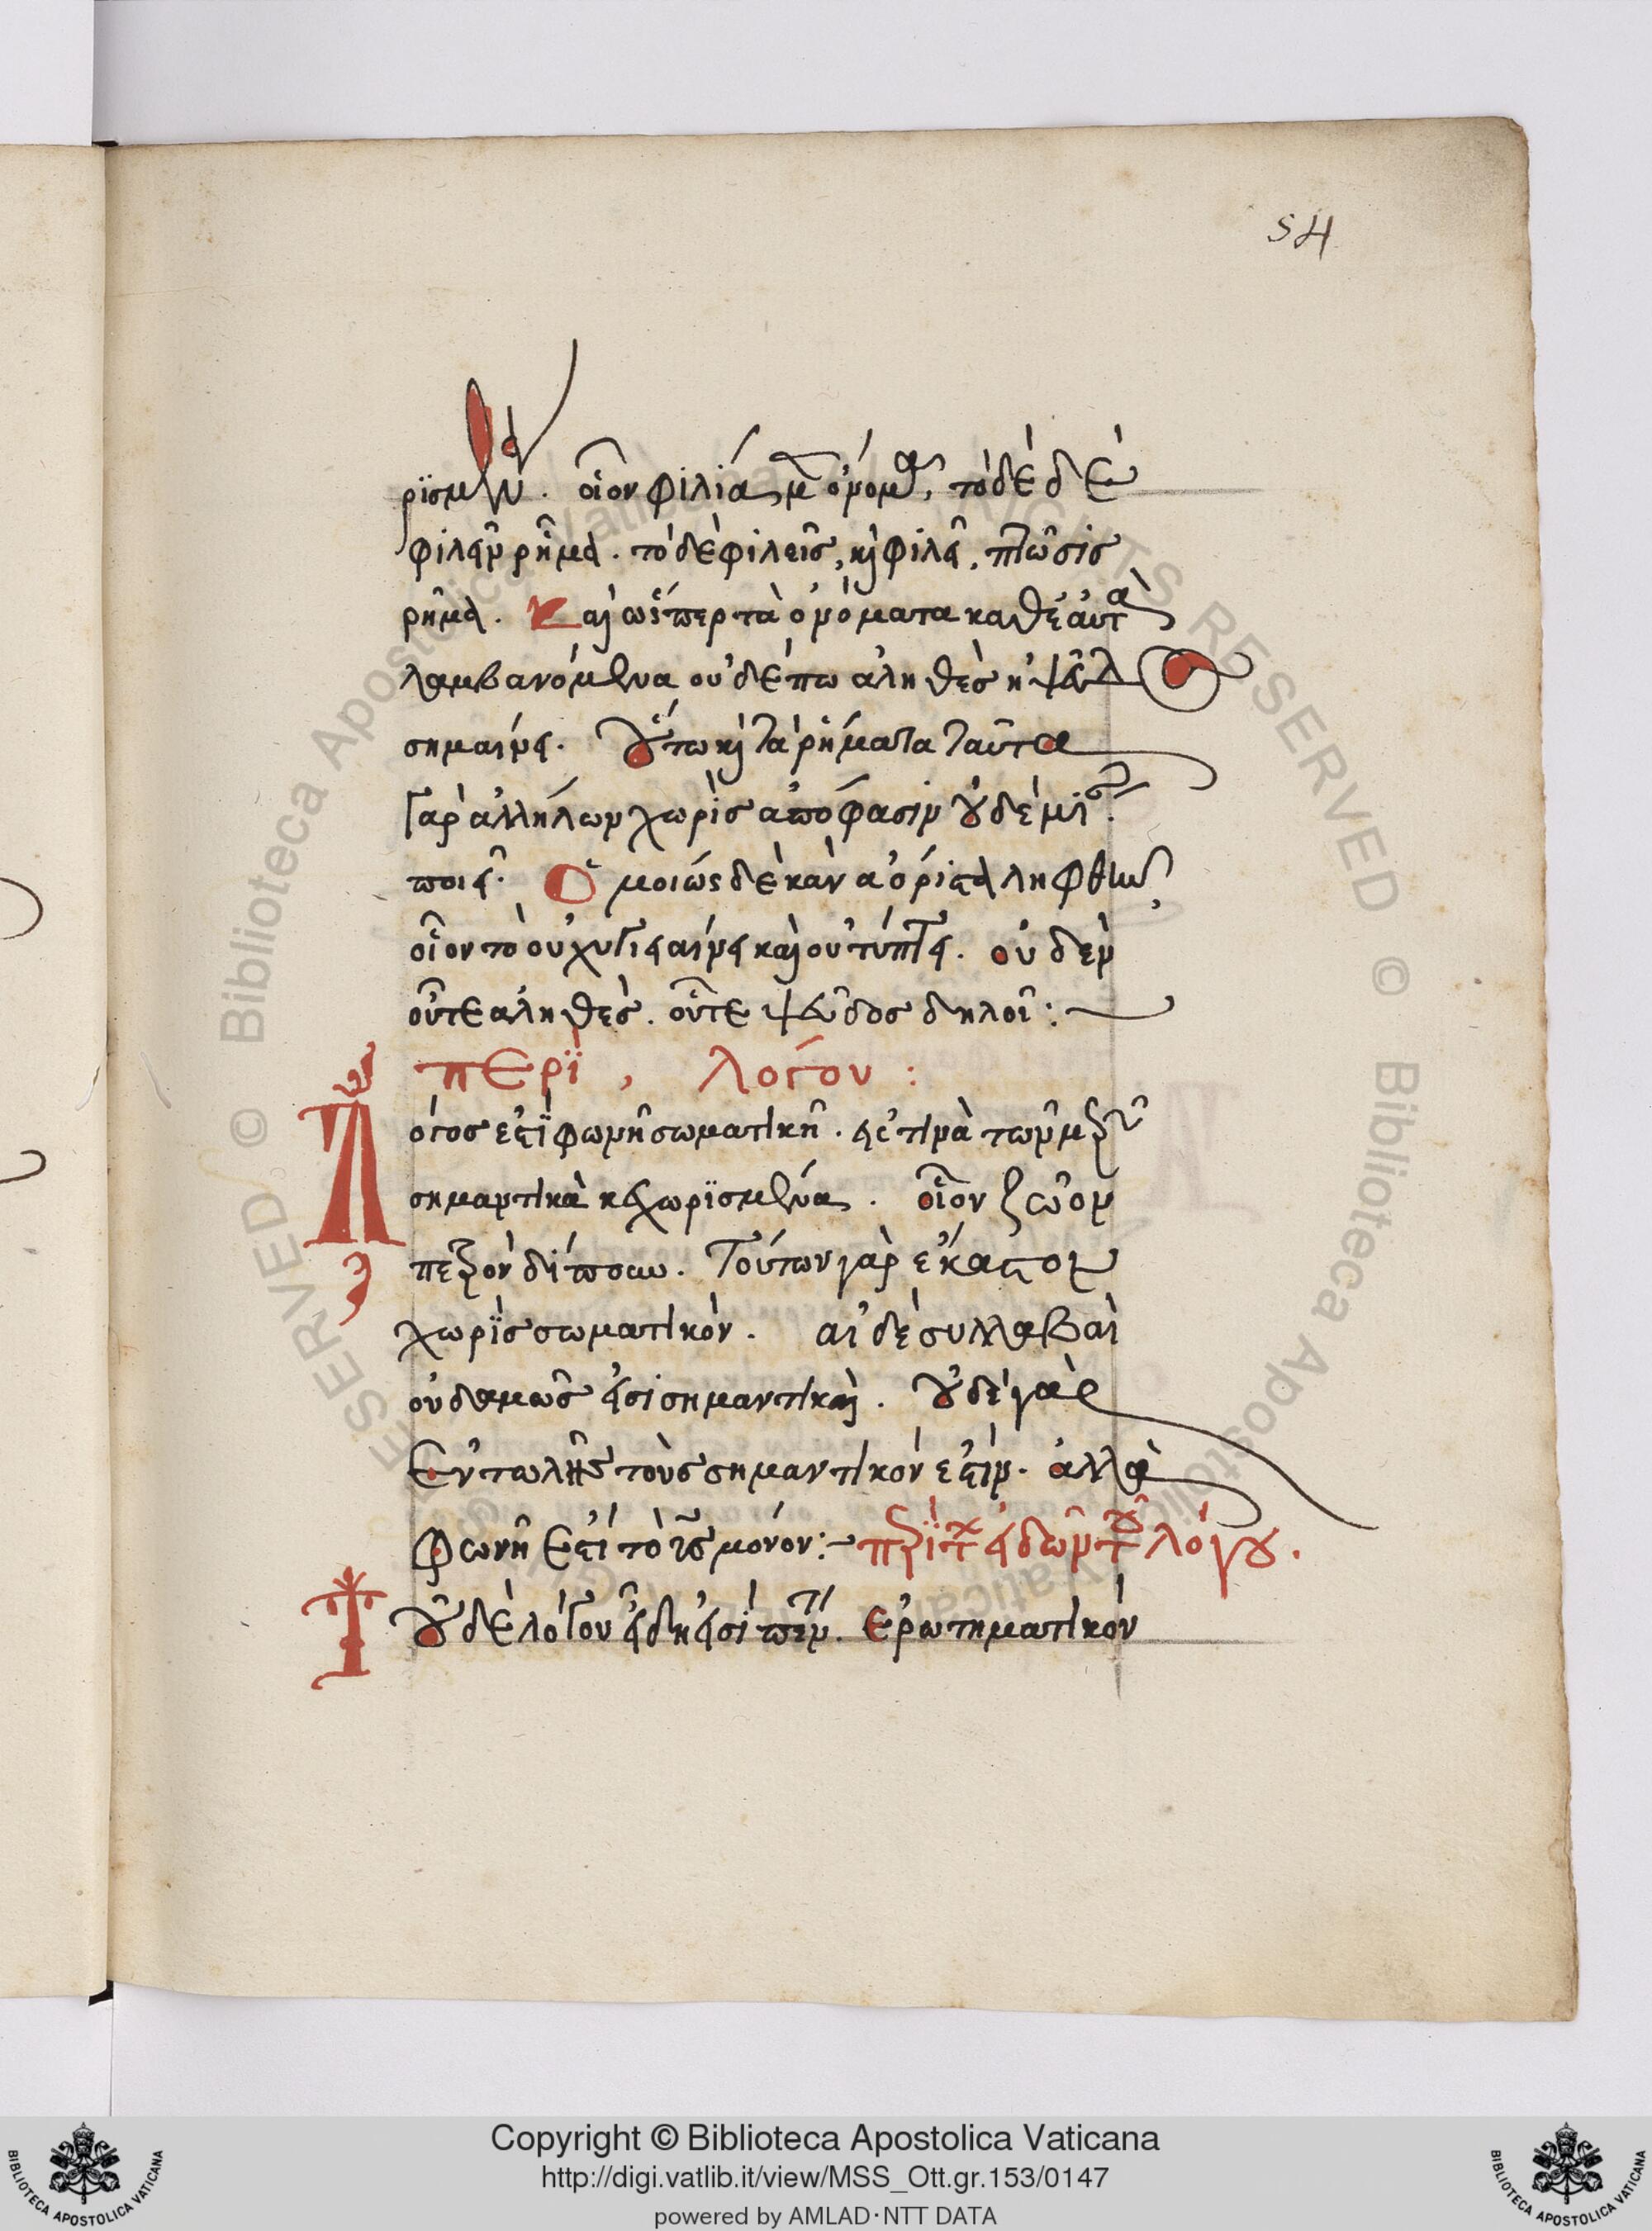 54
ρϊσμένα. οἷον φιλία μὲν ὄνομα, τὸ δὲ δὲ
φιλεῖν ρῆμα. τὸ δὲ φιλεῖς, καὶ φιλεῖ, πτῶσις
ρήμα. Καὶ ὥσπερ τὰ ὀνόματα καθ' ἑαυτὰ
λαμβανόμενα οὐδέπω ἀληθὲς ἢ ψεῦδος
σημαίνει. οὕτω καὶ τὰ ρήματα ταῦτα
γὰρ ἀλλήλων χωρὶς ἀπόφασιν οὐδεμίαν
ποιεῖ. Ὁμοίως δὲ κἂν ἀόριστα ληφθῶσιν
οἷον τὸ οὐχ ὑγιαίνει καὶ οὐ τύπτει. οὐδὲν
οὔτε ἀληθὲς. οὔτε ψεῦδος δηλοῖ:
περϊ, λόγου:
Λόγος ἐστὶ φωνὴ σωματικὴ. ἧς τινὰ τῶν μερῶν
σημαντικὰ κεχωρϊσμένα. οἷον ζῶον
πεζὸν δίπουν. Τούτων γὰρ ἕκαστον
χωρϊς σωματικὸν. αἱ δὲ συλλαβαὶ
οὐδαμῶς εἰσι σημαντικαὶ. οὐδὲ γὰρ
ἐν τῶ λῃς τοὺς σημαντικόν ἐστιν. ἀλλὰ
φωνὴ ἐστὶ τὸ υς μόνον: περὶ τῶν εἰδῶν τοῦ λόγου.
Τοῦ δὲ λόγου εἴδη εἰσὶ πέντε. Ἐρωτηματικόν
Copyright © Biblioteca Apostolica Vaticana
http://digi.vatlib.it/view/MSS_Ott.gr.153/0147
powered by AMLAD·NTT DATA
BIBLIOTECA APOSTOLICA VATICANA
BIBLIOTECA APOSTOLICA VATICANA